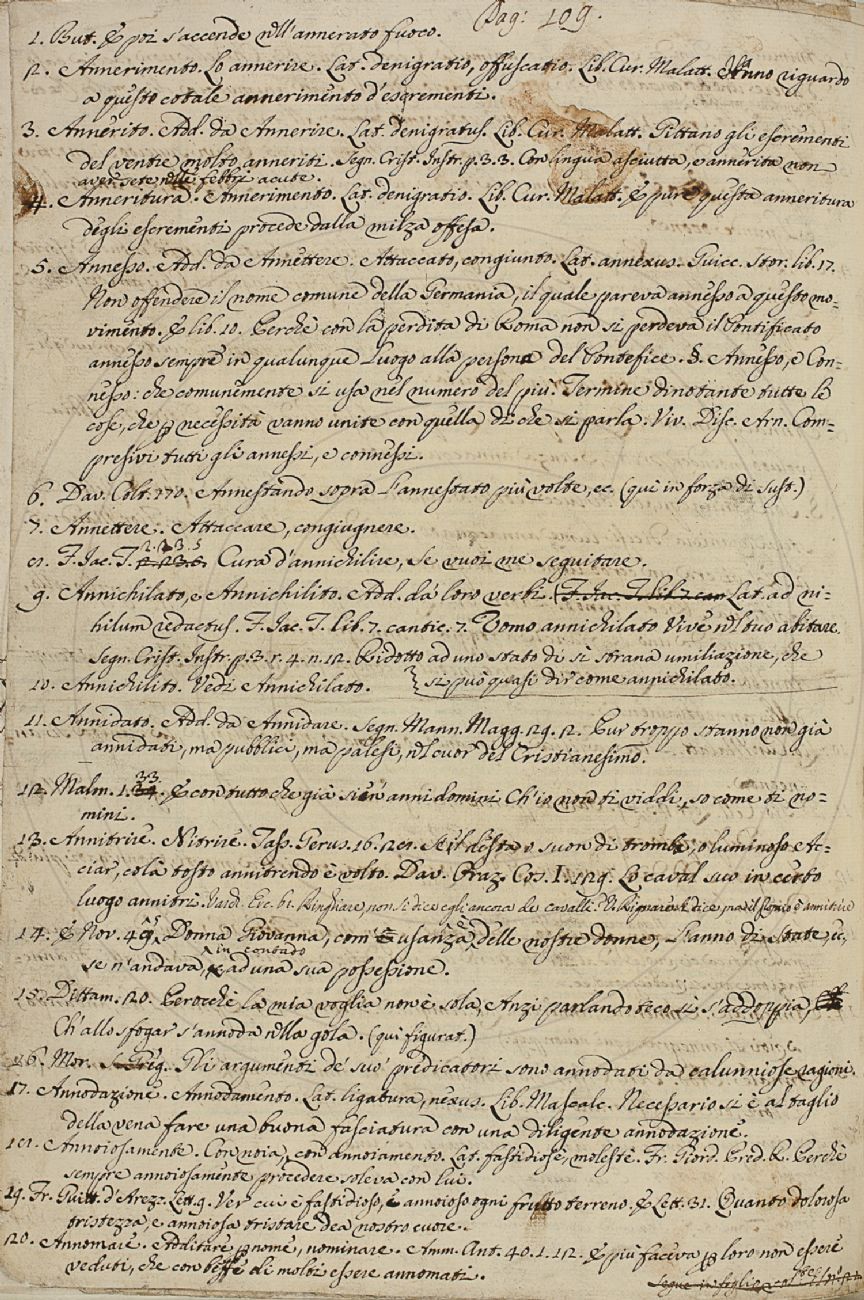 Pag: 109.
1. But. E poi s'accende nell'annerato fuoco.
12. Annerimento. Lo annerire. Lat. denigratio, offuscatio. Lib. Cur. Malatt. riguardo
a questo cotale annerimento d'escrementi.
3. Annerito. Add. da Annerire. Lat. denigratus. Lib. Cur. Malatt. Gittano gli escrementi
del ventre molto anneriti. Segn. Crist. Instr. p. 3. 3. Con lingua asciutta, e annerita non
aver sete nelle febbri acute.
4. Anneritura. Annerimento. Lat. denigratio. Lib. Cur. Malatt. E pure questa anneritura
degli escrementi procede dalla milza offesa.
5. Annesso. Add. da Annettere. Attaccato, congiunto. Lat. annexus. Guicc. Stor. lib. 17.
Non offendere il nome comune della Germania, il quale pareva annesso a questo mo=
vimento. E lib. 10. Perchè con la perdita di Roma non si perdeva il Pontificato
annesso sempre in qualunque luogo alla persona del Pontefice. §. Annesso, e Con=
nesso: che comunemente si usa nel numero del più. Termine dinotante tutte le
cose, che p necessità vanno unite con quella di che si parla. Viv. Disc. Arn. Com=
presivi tutti gli annessi, e connessi.
6. Dav. Colt. 170. Annestando sopra l'annestato più volte, ec. (qui in forza di Sust.)
7. Annettere. Attaccare, congiugnere.
F. Jac. T. 2. 23. 5 Cura d'annichilire, Se vuoi me seguitare.
9. Annichilato, e Annichilito. Add. da' loro verbi. (F. Jac. T. lib. 7. can Lat. ad ni=
hilum redactus. F. Jac. T. lib. 7. cantic. 7. Uomo annichilato Vive nel tuo abitare.
Segn. Crist. Instr. p. 3. r. 4. n. 12. Ridotto ad uno stato di sì strana umiliazione, che
10. Annichilito. Vedi Annichilato. si può quasi dir come annichilato.
11. Annidato. Add. da Annidare. Segn. Mann. Magg. 29. 2. Pur troppo stanno non già
annidati, ma pubblici, ma palesi, nel cuor del Cristianesimo.
12. Malm. 1. 33. E con tutto che già sien anni domini Ch'io non ti viddi, so come ti no=
mini.
13. Annitrire. Nitrire. Tass. Gerus. 16. 28. il desta o suon di tromba, o luminoso Ac=
ciar, colà tosto annitrendo è volto. Dav. Oraz. Cos. I. 129. Lo caval suo in certo
luogo annitrì. Varch. Erc. 61. Ringhiare, non si dice egli ancora de' cavalli?
14. E Nov. 49. 5. Donna Giovanna, com'è usanza delle nostre donne, l'anno di state, ec.
se n'andava in contado ad una sua possessione.
15. Dittam. 120. Perocchè la mia voglia non è sola, Anzi parlando teco sì s'addoppia,
Ch'allo sfogar s'annoda nella gola. (qui figurat.)
16. Mor. S. Greg. Gli argumenti de' suo' predicatori sono annodati da calunniose ragioni.
17. Annodazione. Annodamento. Lat. ligatura, nexus. Lib. Mascalc. Necessario si è al taglio
della vena fare una buona fasciatura con una diligente annodazione.
Annoiosamente. Con noia, con annoiamento. Lat. fastidiosè, molestè. Fr. Giord. Pred. R. Perchè
sempre annoiosamente procedere soleva con lui.
19. Fr. Guitt. d'Arezz. Lett. 9. Ver cui è fastidioso, e annoioso ogni frutto terreno. E Lett. 31. Quanto dolorosa
tristezza, e annoiosa tristare dea nostro cuore.
20. Annomare. Additare p nome, nominare. Amm. Ant. 40. 1. 12. E più faceva p loro non essere
veduti, che con beffe di molti essere annomati.
segue in foglio